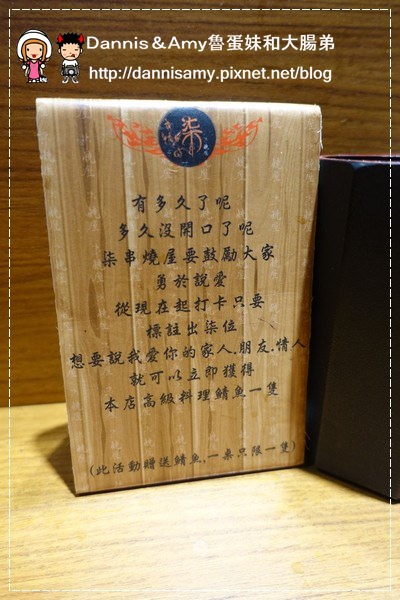 Dannis & Amy魯蛋妹和大腸弟
http://dannisamy.pixnet.net/blog
柒
有多久了呢
多久沒開口了呢
柒串燒屋要鼓勵大家
勇於說愛
從現在起打卡只要
標註出柒位
想要說我愛你的家人.朋友.情人
就可以立即獲得
本店高級料理鯖魚一隻
(此活動贈送鯖魚,一桌只限一隻)